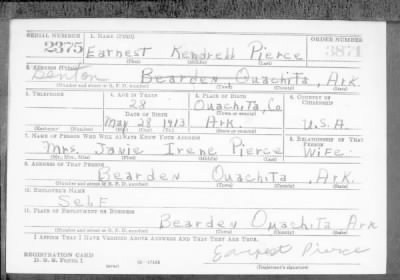 SERIAL NUMBER 1. NAME (PRINT) ORDER NUMBER
2375 Earnest Kendrell Pierce 3871
(First) (Middle) (Last)
2. ADDRESS (PRINT)
Denton Bearden Ouachita, Ark.
(Number and street or R. F. D. number) (Town) (County) (State)
3. TELEPHONE 4. AGE IN YEARS 5. PLACE OF BIRTH 6. COUNTRY OF CITIZENSHIP
28 Ouachita, Co
DATE OF BIRTH (Town or county)
May 28 1913 Ark. U.S.A.
(Exchange) (Number) (Mo.) (Day) (Yr.) (State or country)
7. NAME OF PERSON WHO WILL ALWAYS KNOW YOUR ADDRESS 8. RELATIONSHIP OF THAT PERSON
Mrs. Janie Irene Pierce Wife
(Mr., Mrs., Miss) (First) (Middle) (Last)
9. ADDRESS OF THAT PERSON
Bearden Ouachita, Ark.
(Number and street or R. F. D. number) (Town) (County) (State)
10. EMPLOYER'S NAME
Self
11. PLACE OF EMPLOYMENT OR BUSINESS
Bearden Ouachita Ark
(Number and street or R. F. D. number) (Town) (County) (State)
I AFFIRM THAT I HAVE VERIFIED ABOVE ANSWERS AND THAT THEY ARE TRUE.
REGISTRATION CARD Earnest Pierce
D. S. S. FORM 1 (Registrant's signature)